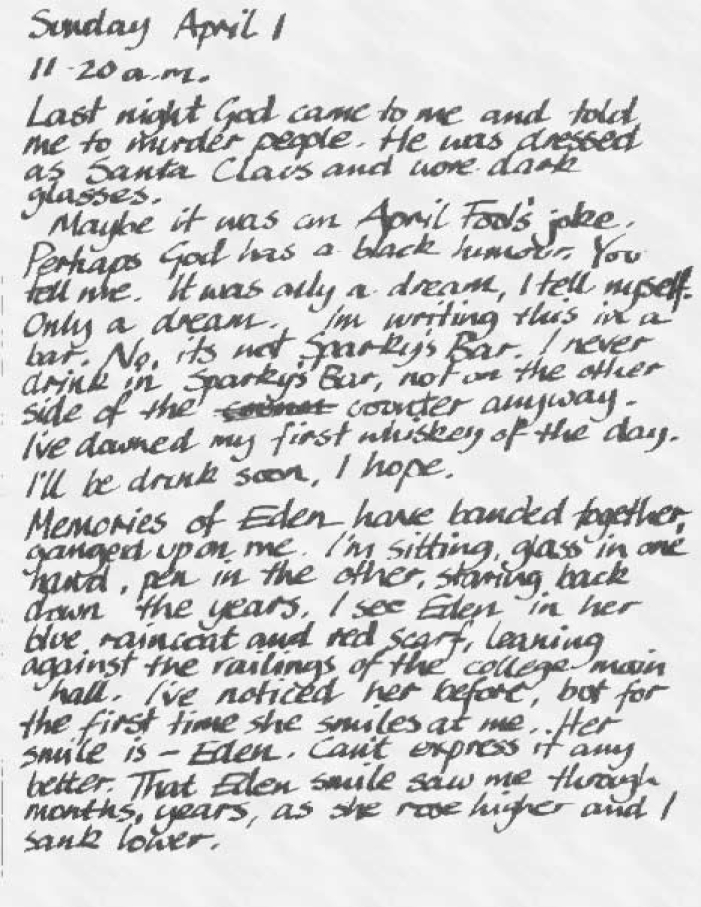 Sunday April 1
11-20 a.m.
Last night God came to me and told
me to murder people. He was dressed
as Santa Claus and wore dark
glasses.
Maybe it was an April Fool's joke.
Perhaps God has a black humour. You
tell me. It was only a dream, I tell myself.
Only a dream. I'm writing this in a
bar. No, it's not Sparky's Bar. I never
drink in Sparky's Bar, not on the other
side of the counter anyway.
I've downed my first whiskey of the day.
I'll be drunk soon, I hope.
Memories of Eden have banded together,
ganged up on me. I'm sitting, glass in one
hand, pen in the other, staring back
down the years. I see Eden in her
blue raincoat and red scarf, leaning
against the railings of the college main
hall. I've noticed her before, but for
the first time she smiles at me.. Her
smile is – Eden. Can't express it any
better. That Eden smile saw me through
months, years, as she rose higher and I
sank lower.